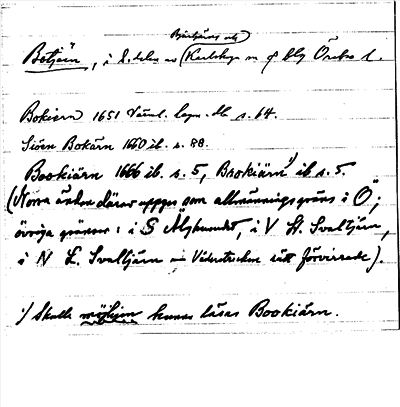 Bokjärn, i S. delen av (Karlskoga sn of blg Örebro l.
Bokiern 1651 Värml. lagm. db s. 64.
Siöen Bokärn 1660 ib. s. 88.
Bookiärn 1666 ib. s. 5, Brokiärn¹⁾ ib s. 5.
(Norra änden därav uppges som allmänningsgräns i Ö;
övriga gränser: i S Älgkundet, i V St. Svaltjärn,
i N L. Svaltjärn. Väderstrecken rätt förvirrade).
¹⁾ Skulle möjligen kunna läsas Bookiärn.